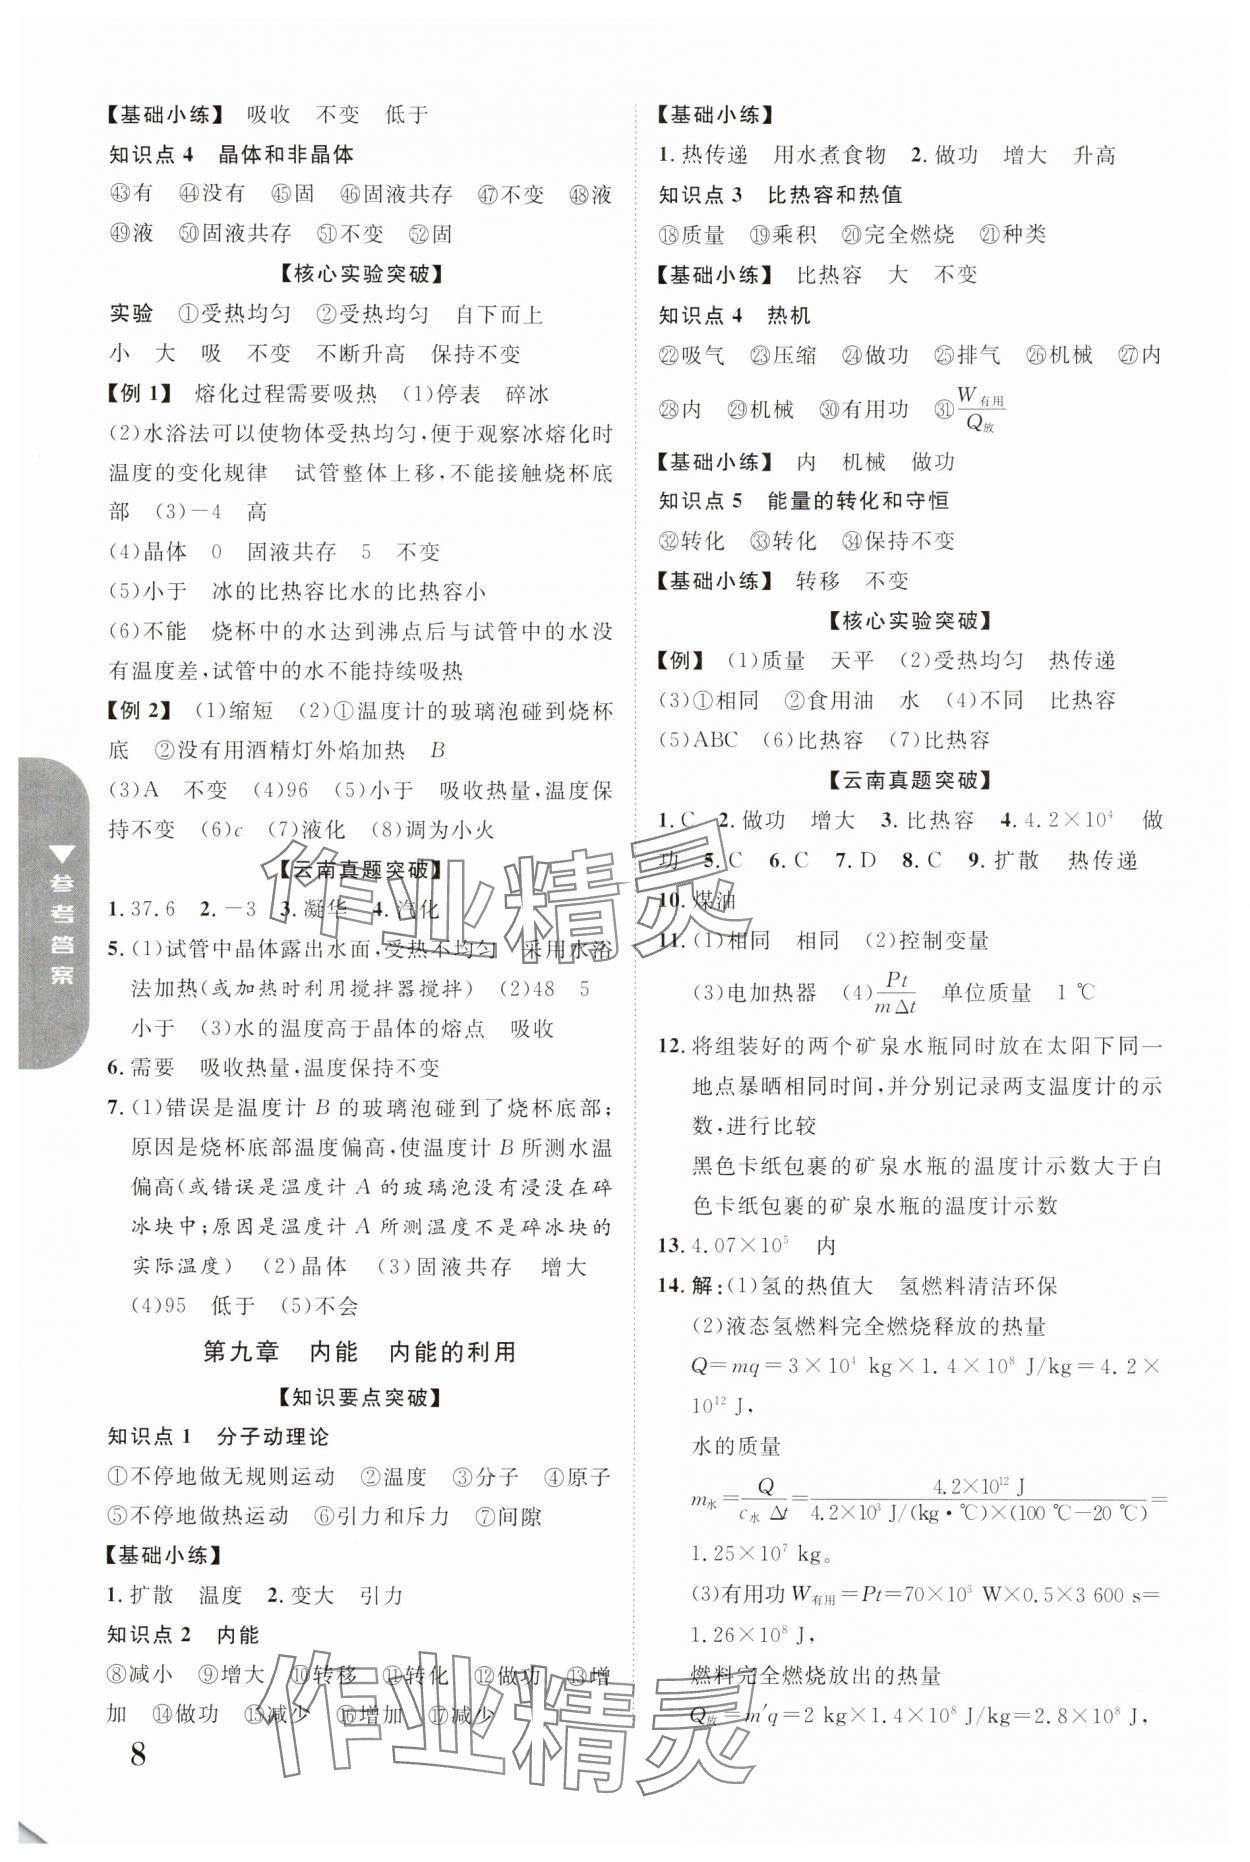 【基础小练】 吸收 不变 低于
知识点4 晶体和非晶体
㊸有 ㊹没有 ㊺固 ㊻固液共存 ㊼不变 ㊽液
㊾液 ㊿固液共存 51不变 52固
【核心实验突破】
实验 ①受热均匀 ②受热均匀 自下而上
小 大 吸 不变 不断升高 保持不变
【例1】 熔化过程需要吸热 (1)停表 碎冰
(2)水浴法可以使物体受热均匀,便于观察冰熔化时
温度的变化规律 试管整体上移,不能接触烧杯底
部 (3)-4 高
(4)晶体 0 固液共存 5 不变
(5)小于 冰的比热容比水的比热容小
(6)不能 烧杯中的水达到沸点后与试管中的水没
有温度差,试管中的水不能持续吸热
【例2】 (1)缩短 (2)①温度计的玻璃泡碰到烧杯
底 ②没有用酒精灯外焰加热 B
(3)A 不变 (4)96 (5)小于 吸收热量,温度保
持不变 (6)c (7)液化 (8)调为小火
【云南真题突破】
1. 37.6 2. -3 3. 凝华 4. 汽化
5. (1)试管中晶体露出水面,受热不均匀 采用水浴
法加热(或加热时利用搅拌器搅拌) (2)48 5
小于 (3)水的温度高于晶体的熔点 吸收
6. 需要 吸收热量,温度保持不变
7. (1)错误是温度计B的玻璃泡碰到了烧杯底部;
原因是烧杯底部温度偏高,使温度计B所测水温
偏高(或错误是温度计A的玻璃泡没有浸没在碎
冰块中;原因是温度计A所测温度不是碎冰块的
实际温度) (2)晶体 (3)固液共存 增大
(4)95 低于 (5)不会
第九章 内能 内能的利用
【知识要点突破】
知识点1 分子动理论
①不停地做无规则运动 ②温度 ③分子 ④原子
⑤不停地做热运动 ⑥引力和斥力 ⑦间隙
【基础小练】
1. 扩散 温度 2. 变大 引力
知识点2 内能
⑧减小 ⑨增大 ⑩转移 ⑪转化 ⑫做功 ⑬增
加 ⑭做功 ⑮减少 ⑯增加 ⑰减少
8
【基础小练】
1. 热传递 用水煮食物 2. 做功 增大 升高
知识点3 比热容和热值
⑱质量 ⑲乘积 ⑳完全燃烧 ㉑种类
【基础小练】 比热容 大 不变
知识点4 热机
㉒吸气 ㉓压缩 ㉔做功 ㉕排气 ㉖机械 ㉗内
㉘内 ㉙机械 ㉚有用功 ㉛W有用/Q放
【基础小练】 内 机械 做功
知识点5 能量的转化和守恒
㉜转化 ㉝转化 ㉞保持不变
【基础小练】 转移 不变
【核心实验突破】
【例】 (1)质量 天平 (2)受热均匀 热传递
(3)①相同 ②食用油 水 (4)不同 比热容
(5)ABC (6)比热容 (7)比热容
【云南真题突破】
1. C 2. 做功 增大 3. 比热容 4. 4.2×10⁴ 做
功 5. C 6. C 7. D 8. C 9. 扩散 热传递
10. 煤油
11. (1)相同 相同 (2)控制变量
(3)电加热器 (4)Pt/mΔt 单位质量 1 ℃
12. 将组装好的两个矿泉水瓶同时放在太阳下同一
地点暴晒相同时间,并分别记录两支温度计的示
数,进行比较
黑色卡纸包裹的矿泉水瓶的温度计示数大于白
色卡纸包裹的矿泉水瓶的温度计示数
13. 4.07×10⁵ 内
14. 解:(1)氢的热值大 氢燃料清洁环保
(2)液态氢燃料完全燃烧释放的热量
Q=mq=3×10⁴ kg×1.4×10⁸ J/kg=4.2×
10¹² J,
水的质量
m水=Q/(c水 Δt)=4.2×10¹² J/(4.2×10³ J/(kg·℃)×(100 ℃-20 ℃))=
1.25×10⁷ kg。
(3)有用功W有用=Pt=70×10³ W×0.5×3 600 s=
1.26×10⁸ J,
燃料完全燃烧放出的热量
Q放=m′q=2 kg×1.4×10⁸ J/kg=2.8×10⁸ J,
参考答案
作业精灵
作业精灵